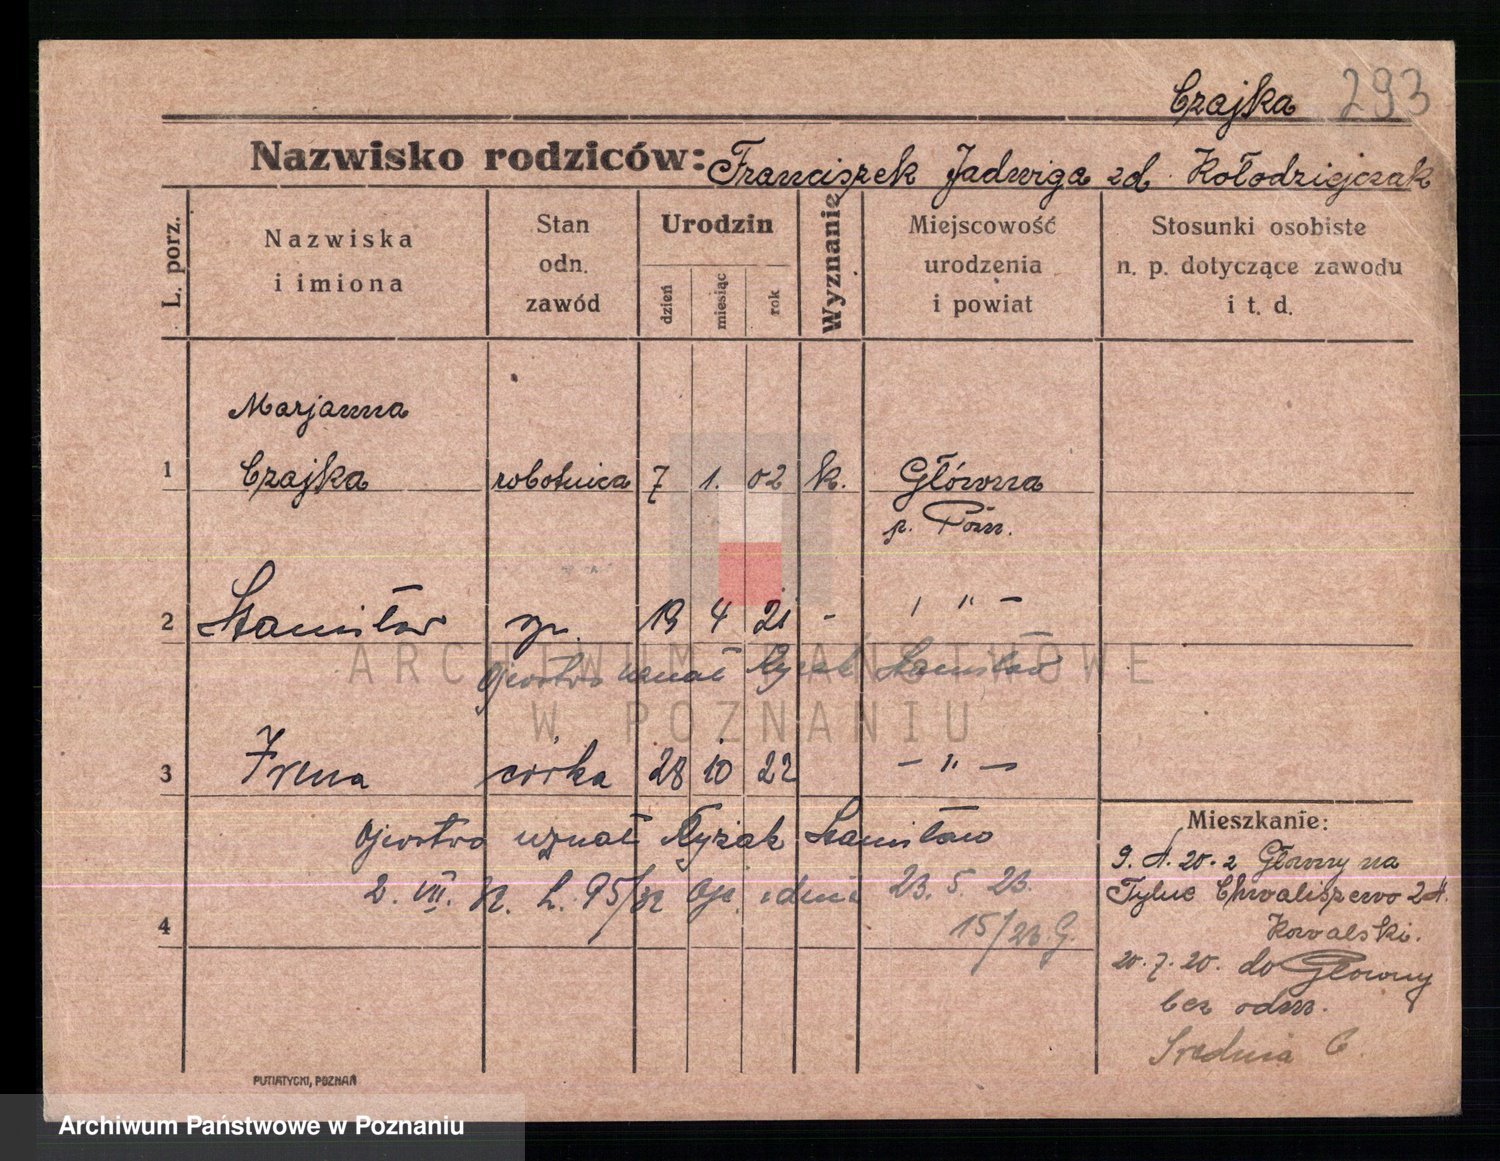 Czajka 293
Nazwisko rodziców: Franciszek Jadwiga zd. Kołodziejczak
L. porz.
Nazwiska
i imiona
Stan
odn.
zawód
Urodzin
dzień
miesiąc
rok
Wyznanie
Miejscowość
urodzenia
i powiat
Stosunki osobiste
n. p. dotyczące zawodu
i t. d.
Marjanna
1 Czajka robotnica 7 1. 02 k. Główna
p. Pozn.
2 Stanisław sp. 19 4 21 - ' " -
Ojcostwo uznał Ryżak Stanisław
ARCHIWUM PAŃSTWOWE
W POZNANIU
3 Irena córka 28 10 22 - " -
Ojcostwo uznał Ryżak Stanisław
2. VII. 32. L. 95/32 23. 5. 23.
4 15/23 G.
Mieszkanie:
9. 4. 20. z Główny na
Tylne Chwaliszewo 24.
Kowalski.
20. 7. 20. do Główny
bez odm.
Średnia 6.
PUTIATYCKI, POZNAŃ
Archiwum Państwowe w Poznaniu